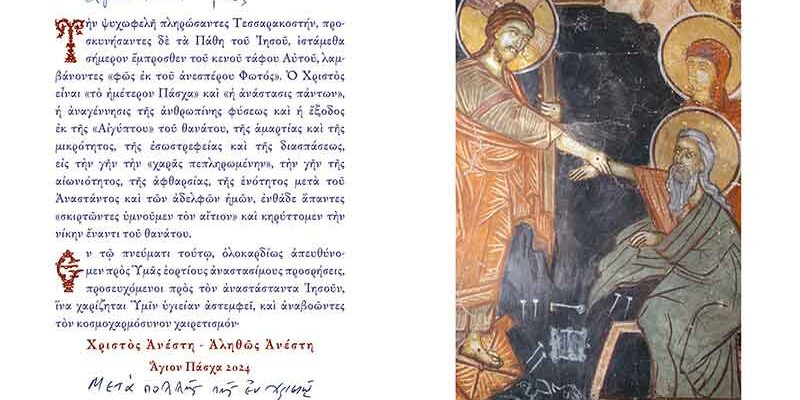 Τὴν ψυχωφελῆ πληρώσαντες Τεσσαρακοστήν, προσ-
κυνήσαντες δὲ τὰ Πάθη τοῦ Ἰησοῦ, ἱστάμεθα
σήμερον ἔμπροσθεν τοῦ κενοῦ τάφου Αὐτοῦ, λαμ-
βάνοντες «φῶς ἐκ τοῦ ἀνεσπέρου Φωτός». Ὁ Χριστὸς
εἶναι «τὸ ἡμέτερον Πάσχα» καὶ «ἡ ἀνάστασις πάντων»,
ἡ ἀναγέννησις τῆς ἀνθρωπίνης φύσεως καὶ ἡ ἔξοδος
ἐκ τῆς «Αἰγύπτου» τοῦ θανάτου, τῆς ἁμαρτίας καὶ τῆς
μικρότητος, τῆς ἐσωστρεφείας καὶ τῆς διασπάσεως,
εἰς τὴν γῆν τὴν «χαρᾶς πεπληρωμένην», τὴν γῆν τῆς
αἰωνιότητος, τῆς ἀφθαρσίας, τῆς ἑνότητος μετὰ τοῦ
Ἀναστάντος καὶ τῶν ἀδελφῶν ἡμῶν, ἐνθάδε ἅπαντες
«σκιρτῶντες ὑμνοῦμεν τὸν αἴτιον» καὶ κηρύττομεν τὴν
νίκην ἔναντι τοῦ θανάτου.
Ἐν τῷ πνεύματι τούτῳ, ὁλοκαρδίως ἀπευθύνο-
μεν πρὸς Ὑμᾶς ἑορτίους ἀναστασίμους προσρήσεις,
προσευχόμενοι πρὸς τὸν ἀναστάντα Ἰησοῦν,
ἵνα χαρίζηται Ὑμῖν ὑγιείαν ἀστεμφεῖ, καὶ ἀναβοῶντες
τὸν κοσμοχαρμόσυνον χαιρετισμόν·
Χριστὸς Ἀνέστη - Ἀληθῶς Ἀνέστη
Ἅγιον Πάσχα 2024
Μετὰ πολλῆς τῆς ἐν Χριστῷ